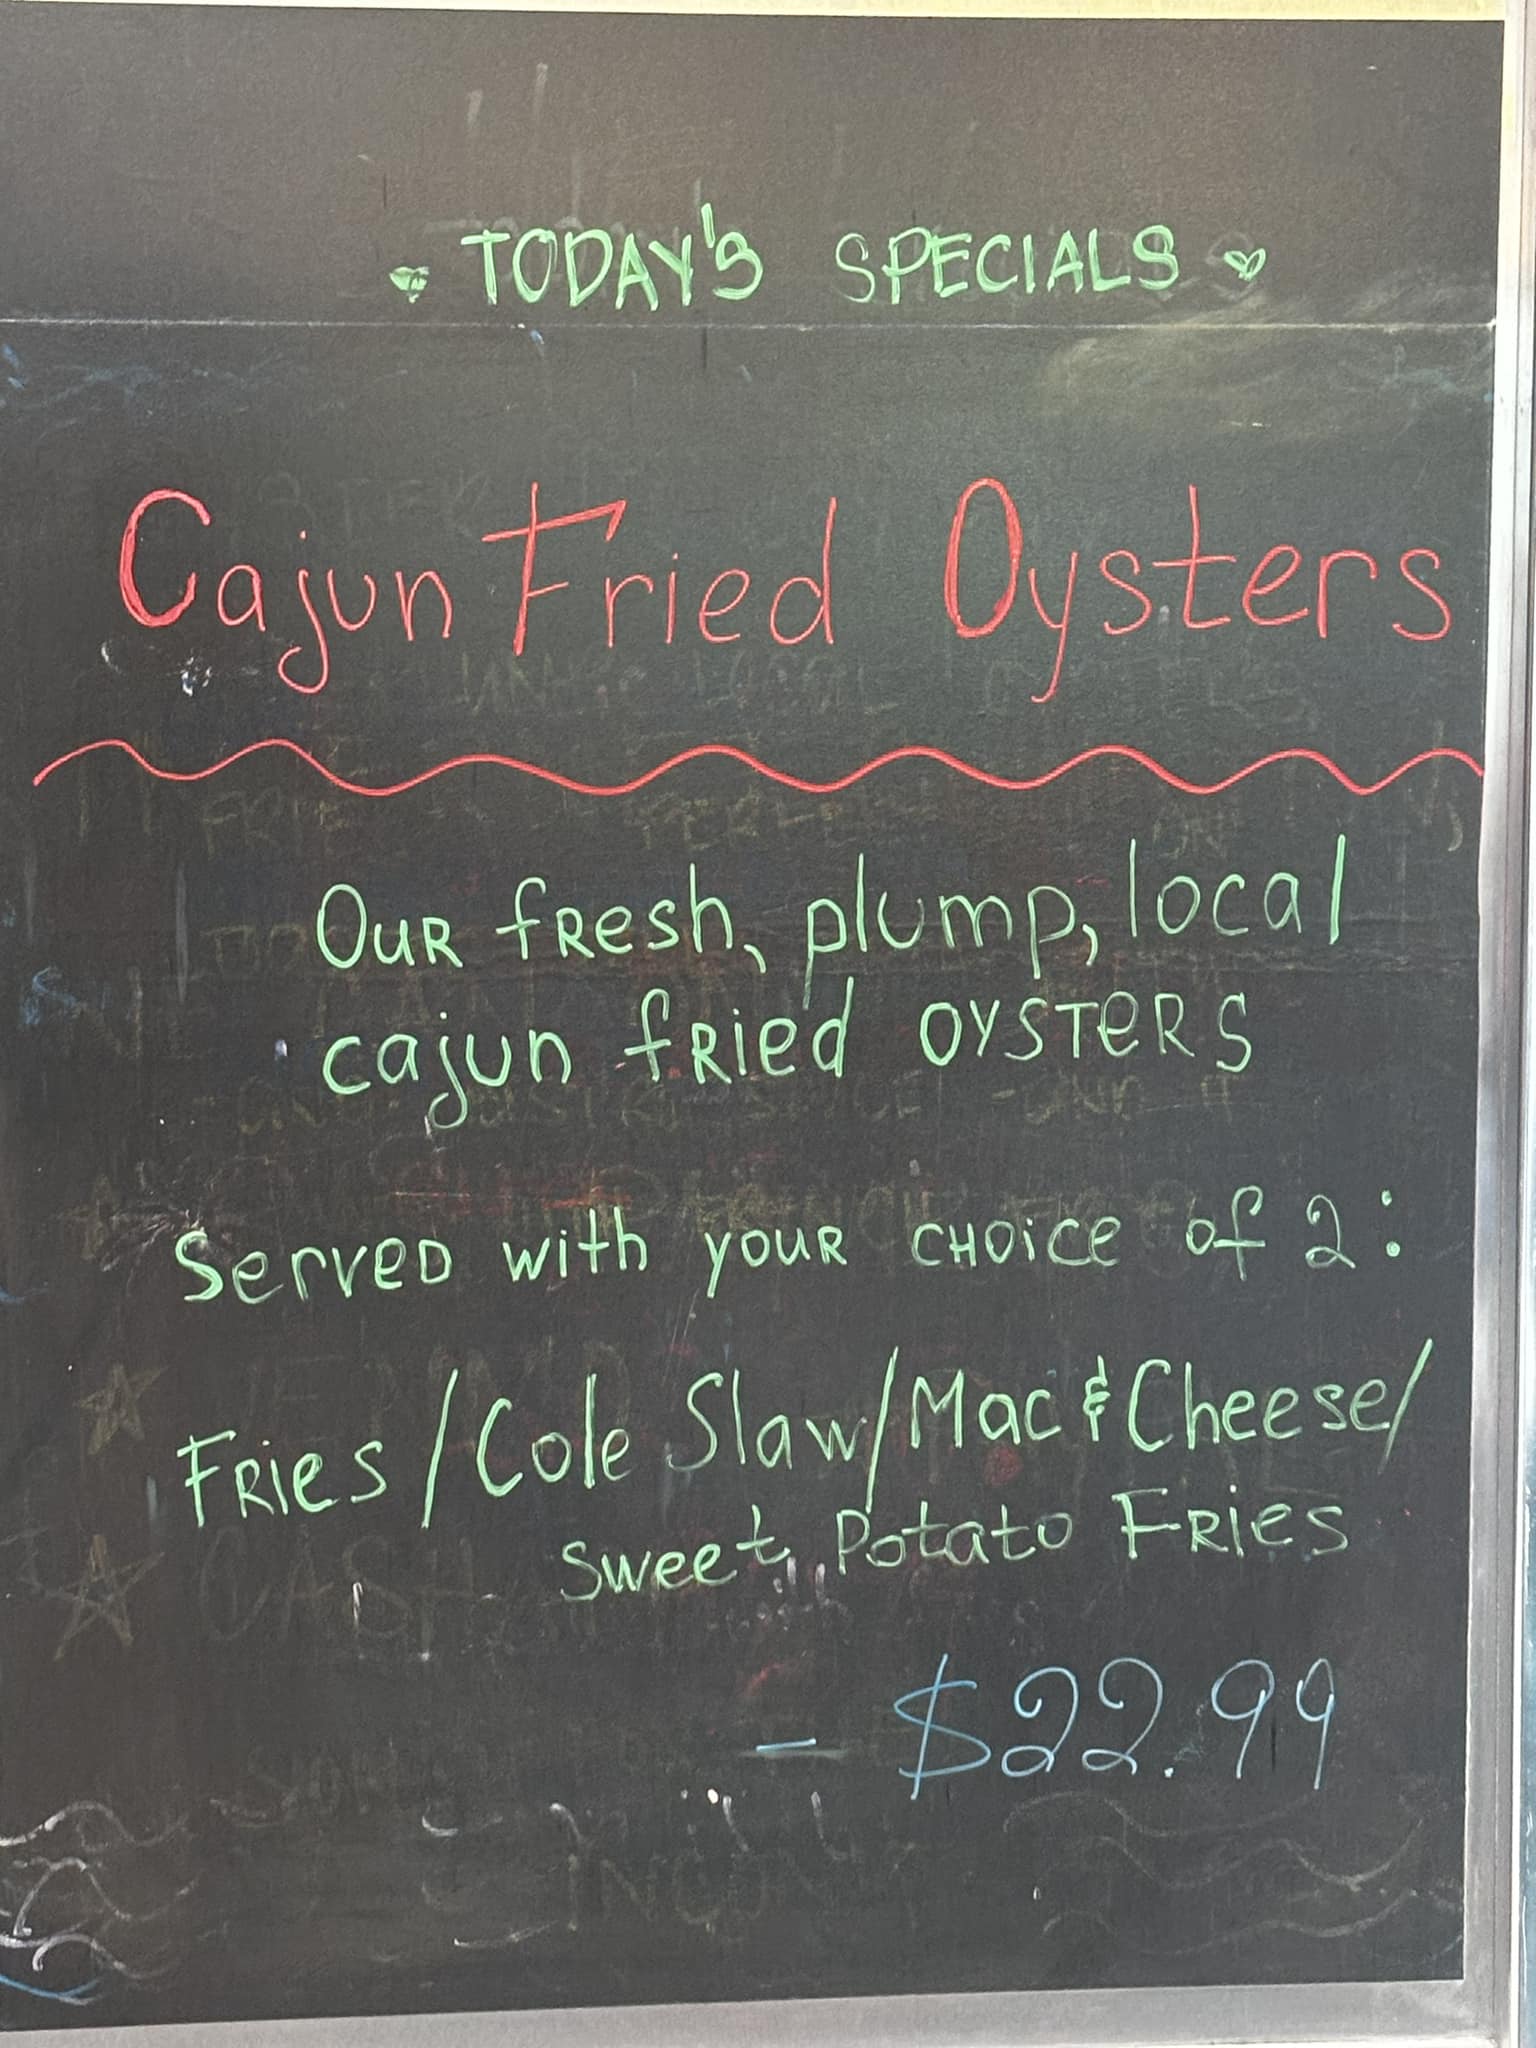 TODAY'S SPECIALS
Cajun Fried Oysters
Our fresh, plump, local
cajun fried oysters
Served with your choice of 2:
Fries/Cole Slaw/Mac & Cheese/
Sweet Potato Fries
- $22.99